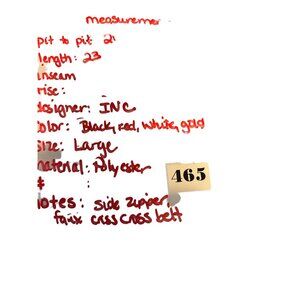 measuremen
pit to pit 21
length: 23
inseam
rise:
designer: INC
color: Black, red, white, gold
size: Large
material: Polyester
:
465
notes: side zipper,
faux criss cross belt